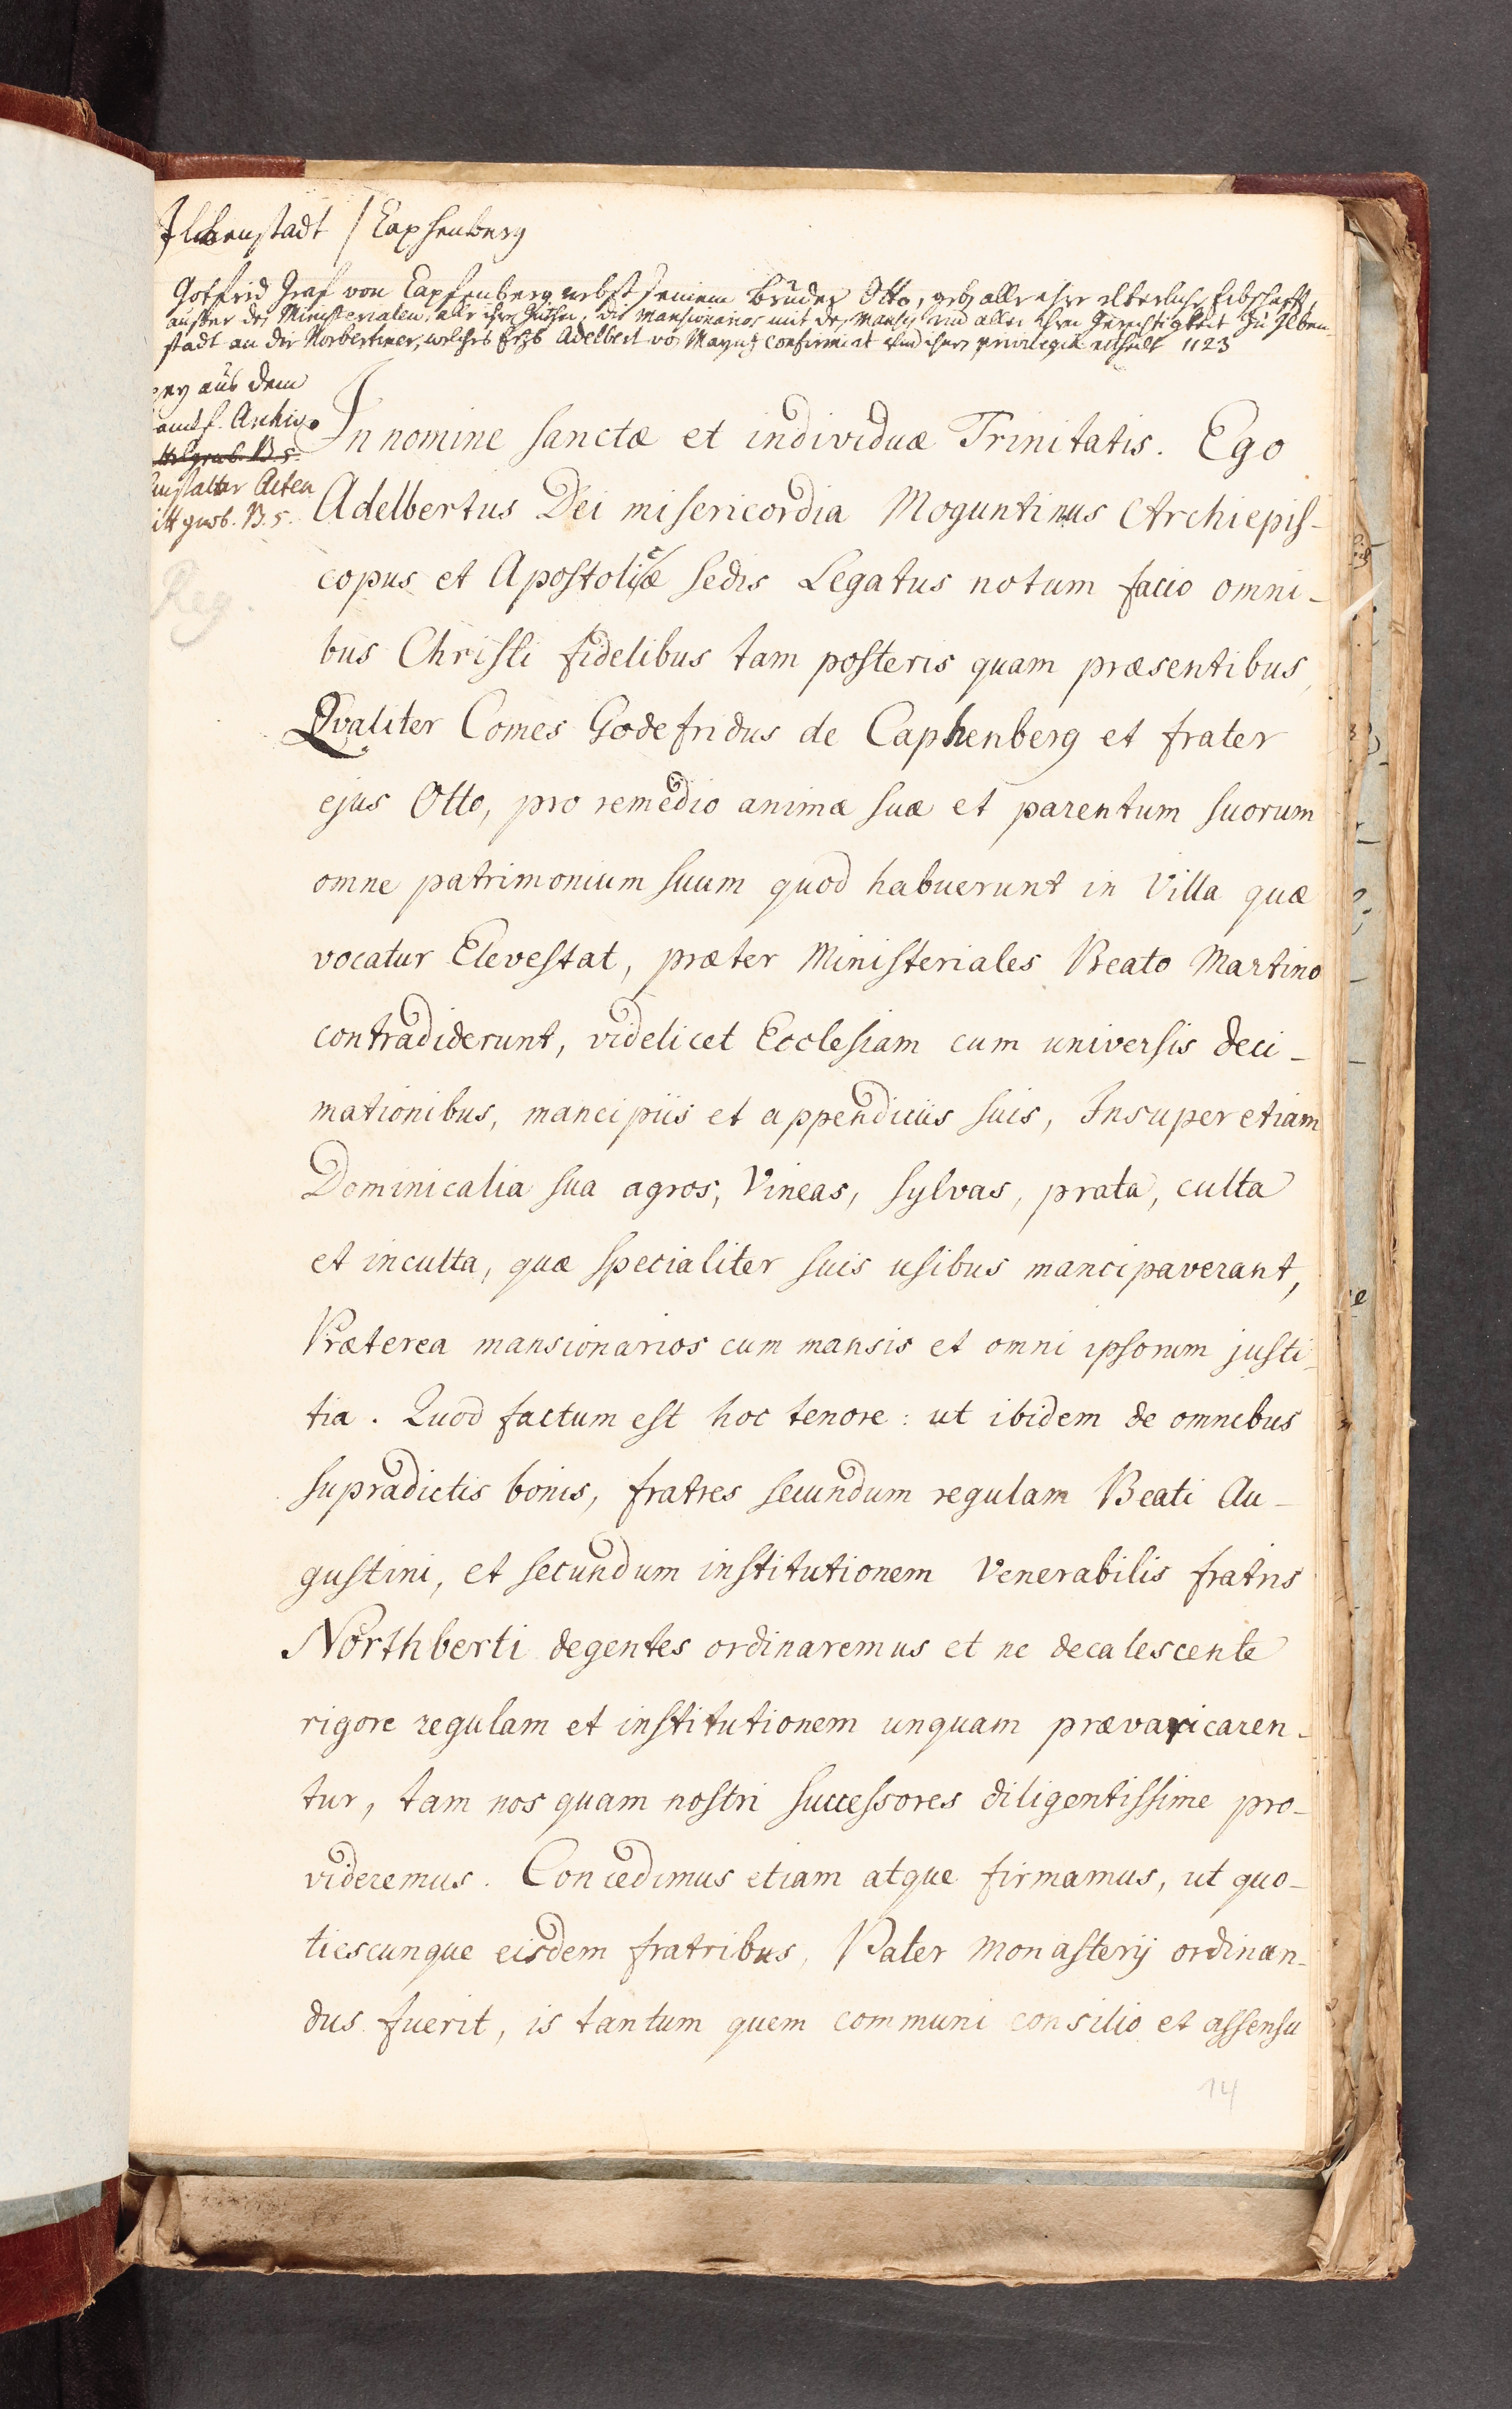 Ilbenstadt / Capfenberg
Gotfrid Graf von Capfenberg nebst seinem bruder Otto, geb alle ihre elterliche Erbschafft,
ausser der Ministerialen, alle ihre Güther, die Mansionarios mit der Mansis und aller ihrer Gerechtigkeit zu Ilben-
stadt an die Norbertiner, welches Erzb Adelbert vo Maynz confirmirt und ihnen privilegia ertheilt 1123
aus dem
Archivo
B. 5.
Acten
B. 5.
Reg.
In nomine sanctæ et individuæ Trinitatis. Ego
Adelbertus Dei misericordia Moguntinus Archiepis-
copus et Apostolicæ sedis Legatus notum facio omni-
bus Christi fidelibus tam posteris quam præsentibus,
Qvaliter Comes Godefridus de Caphenberg et frater
ejus Otto, pro remedio animæ suæ et parentum suorum
omne patrimonium suum quod habuerunt in Villa quæ
vocatur Elevestat, præter Ministeriales Beato Martino
contradiderunt, videlicet Ecclesiam cum universis deci-
mationibus, mancipiis et appendiciis suis, Insuper etiam
Dominicalia sua agros, Vineas, sylvas, prata, culta
et inculta, quæ specialiter suis usibus mancipaverant,
Præterea mansionarios cum mansis et omni ipsorum justi-
tia. Quod factum est hoc tenore: ut ibidem de omnibus
supradictis bonis, fratres secundum regulam Beati Au-
gustini, et secundum institutionem Venerabilis fratris
Northberti degentes ordinaremus et ne decalescente
rigore regulam et institutionem unquam prævaricaren-
tur, tam nos quam nostri successores diligentissime pro-
videremus. Concedimus etiam atque firmamus, ut quo-
tiescunque eisdem fratribus, Pater Monasterij ordinan-
dus fuerit, is tantum quem communi consilio et assensu
14